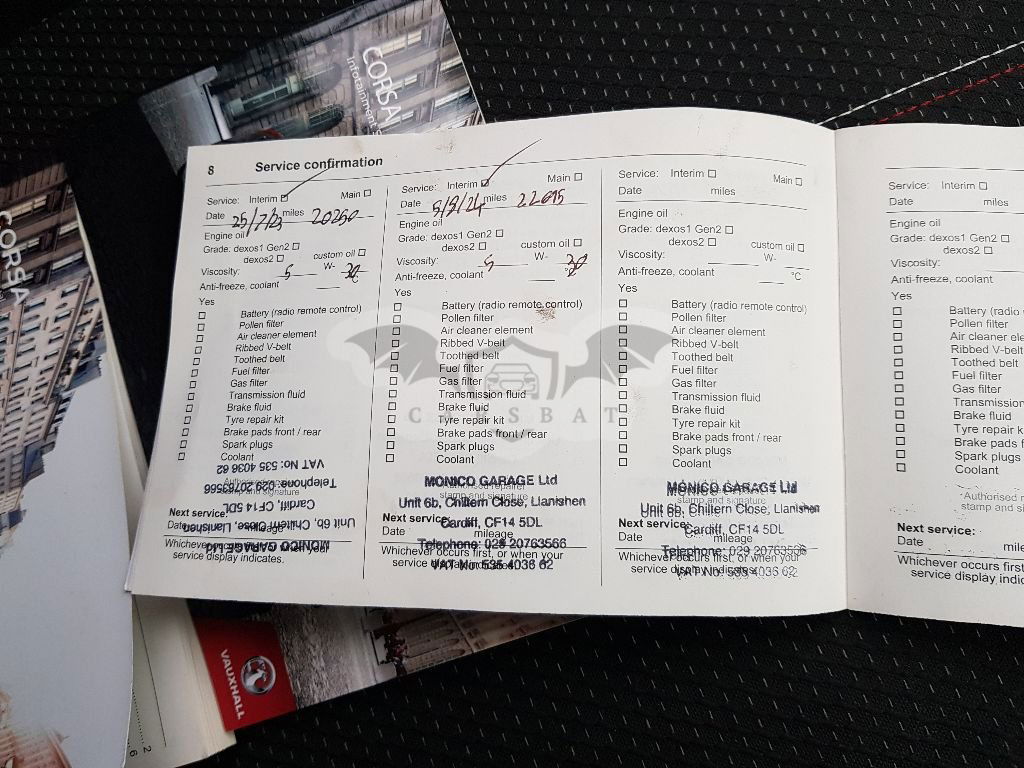 CORSA
Infotainment
8 Service confirmation
Service: Interim Main
Date 25/7/23 miles 20250
Engine oil
Grade: dexos1 Gen2
dexos2 custom oil
Viscosity: 5 W- 30
Anti-freeze, coolant
Yes
Battery (radio remote control)
Pollen filter
Air cleaner element
Ribbed V-belt
Toothed belt
Fuel filter
Gas filter
Transmission fluid
Brake fluid
Tyre repair kit
Brake pads front / rear
Spark plugs
Coolant
Authorised repairer
stamp and signature
MONICO GARAGE LTD
Unit 6b, Chiltern Close, Llanishen
Cardiff, CF14 5DL
Telephone: 029 20763566
VAT No: 535 4036 62
Next service:
Date mileage
Whichever occurs first, or when your
service display indicates.
Service: Interim Main
Date miles 22695
Engine oil
Grade: dexos1 Gen2
dexos2 custom oil
Viscosity: 5 W- 30
Anti-freeze, coolant °C
Yes
Battery (radio remote control)
Pollen filter
Air cleaner element
Ribbed V-belt
Toothed belt
Fuel filter
Gas filter
Transmission fluid
Brake fluid
Tyre repair kit
Brake pads front / rear
Spark plugs
Coolant
Authorised repairer
stamp and signature
MONICO GARAGE Ltd
Unit 6b, Chiltern Close, Llanishen
Cardiff, CF14 5DL
Telephone: 029 20763566
VAT No: 535 4036 62
Next service:
Date mileage
Whichever occurs first, or when your
service display indicates.
Service: Interim Main
Date miles
Engine oil
Grade: dexos1 Gen2
dexos2 custom oil
Viscosity: W-
Anti-freeze, coolant °C
Yes
Battery (radio remote control)
Pollen filter
Air cleaner element
Ribbed V-belt
Toothed belt
Fuel filter
Gas filter
Transmission fluid
Brake fluid
Tyre repair kit
Brake pads front / rear
Spark plugs
Coolant
stamp and signature
MONICO GARAGE Ltd
Unit 6b, Chiltern Close, Llanishen
Cardiff, CF14 5DL
Telephone: 029 20763566
VAT No: 535 4036 62
Next service:
Date mileage
Whichever occurs first, or when your
service display indicates.
Service: Interim
Date miles
Engine oil
Grade: dexos1 Gen2
dexos2
Viscosity:
Anti-freeze, coolant
Yes
Battery (radio
Pollen filter
Air cleaner
Ribbed V-belt
Toothed belt
Fuel filter
Gas filter
Transmission
Brake fluid
Tyre repair kit
Brake pads
Spark plugs
Coolant
Authorised
stamp and
Next service:
Date
Whichever occurs first
service display
CORSA
VAUXHALL
2
6